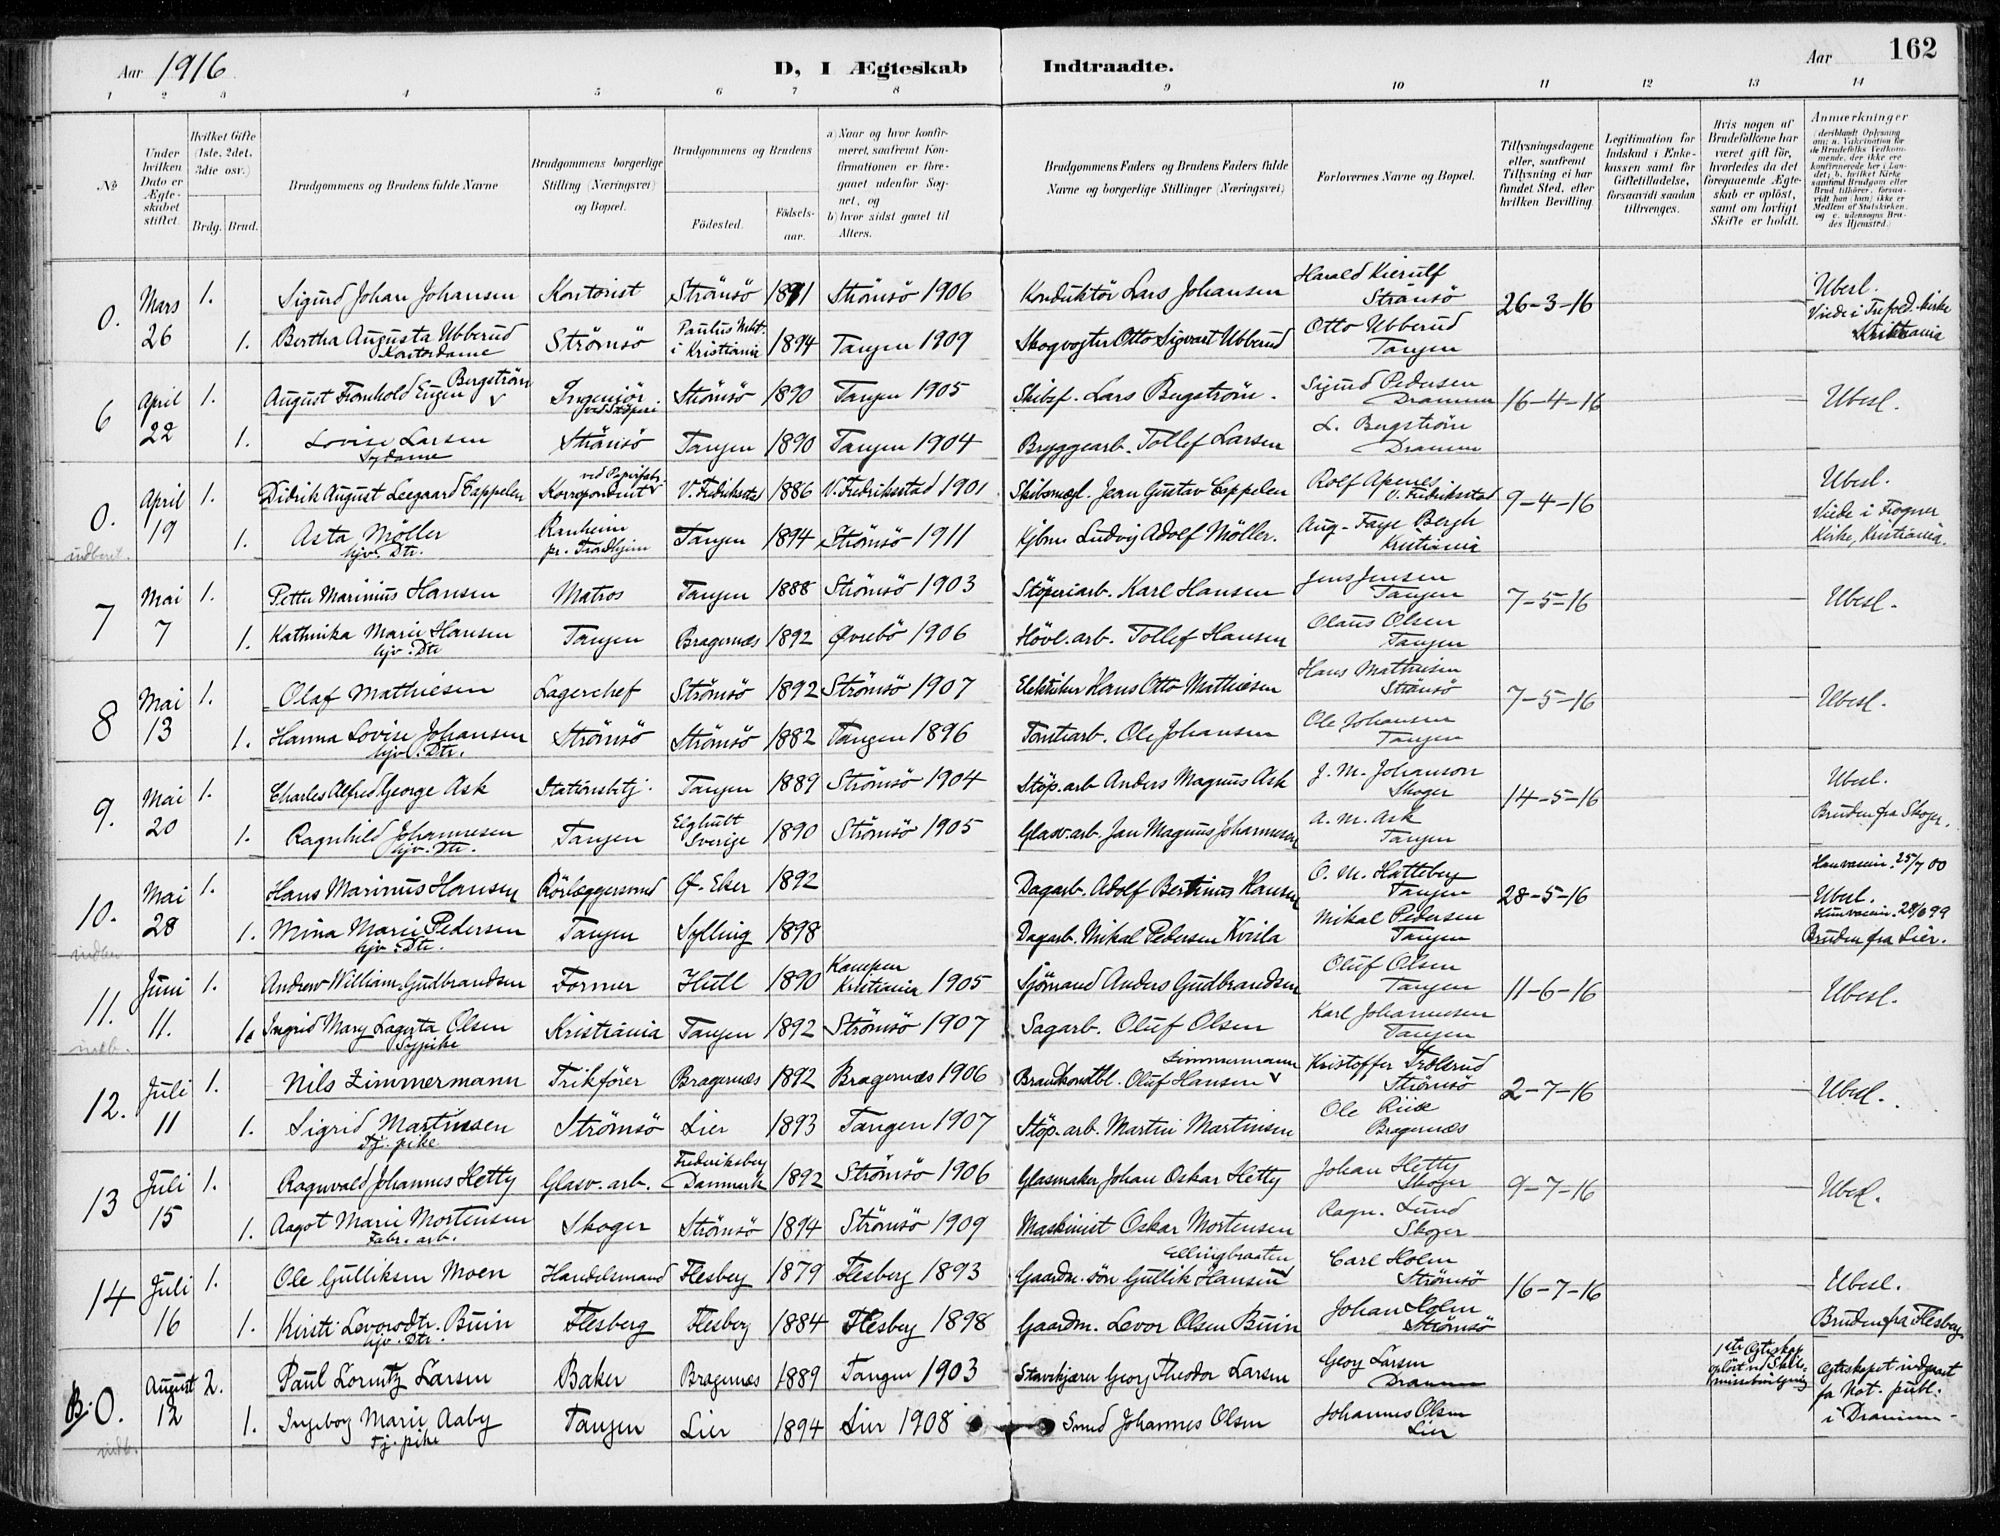 Aar 1916
D, I Ægteskab Indtraadte.
Aar 162
1 2 3 4 5 6 7 8 9 10 11 12 13 14
No
Under hvilken Dato er Ægteskabet stiftet.
Hvilket Gifte (1ste, 2det, 3die osv.)
Brdg. Brud.
Brudgommens og Brudens fulde Navne
Brudgommens borgerlige Stilling (Næringsvei) og Bopæl.
Brudgommens og Brudens
Fødested. Fødselsaar.
a) Naar og hvor konfirmeret, saafremt Konfirmationen er foregaaet udenfor Sognet, og
b) hvor sidst gaaet til Alters.
Brudgommens Faders og Brudens Faders fulde Navne og borgerlige Stillinger (Næringsvei)
Forlovernes Navne og Bopæl.
Tillysningsdagene eller, saafremt Tillysning ei har fundet Sted, efter hvilken Bevilling.
Legitimation for Indskud i Enkekassen samt for Giftetilladelse, forsaavidt saadan tiltrænges.
Hvis nogen af Brudefolkene har været gift før, hvorledes da det foregaaende Ægteskab er opløst, samt om lovligt Skifte er holdt.
Anmærkninger
(deriblandt Oplysning om: a. Vakcination for de Brudefolks Vedkommende, der ikke ere konfirmerede her i Landet; b. hvilket Kirkesamfund Brudgom eller Brud tilhører, forsaavidt han (hun) ikke er Medlem af Statskirken, og c. udensogns Brudes Hjemsted.)
0. Mars 26 1. Sigurd Johan Johansen Kontorist Strömsö 1891 Strömsö 1906 Konduktör Lars Johansen Harald Kierulf Strömsö 26-3-16 Ubesl.
1. Bertha Augusta Ubberud Kontordame Strömsö Paulus Mht. i Kristiania 1894 Tangen 1909 Skogvogter Otto Sigvart Ubberud Otto Ubberud Tangen Viede i Trefold. kirke Kristiania
6 April 22 1. August Fromhold Eugen Bergström Ingeniör Strömsö 1890 Tangen 1905 Skibsf. Lars Bergström. Sigurd Pedersen Drammen 16-4-16 Ubesl.
1. Lovise Larsen Sydame Strömsö Tangen 1890 Tangen 1904 Bryggearb. Tollef Larsen L. Bergström Drammen
0. April 19 1. Didrik August Leegaard Cappelen Korrespondent ved Papirfabr. V. Fredriksstad 1886 V. Fredriksstad 1901 Skibsmægl. Jean Gustav Cappelen Rolf Apenes V. Fredriksstad 9-4-16 Ubesl.
indberet. 1. Asta Møller hjv. Dtr. Ranheim pr. Trondhjem Tangen 1894 Strömsö 1911 Kjbm. Ludvig Adolf Møller. Aug. Faye Bergh Kristiania Viede i Frogner Kirke, Kristiania.
7 Mai 7 1. Petter Marinius Hansen Matros Tangen 1888 Strömsö 1903 Stöperiarb. Karl Hansen Jens Jensen Tangen 7-5-16 Ubesl.
1. Kathinka Marie Hansen hjv. Dtr Tangen Bragernæs 1892 Øvrebö 1906 Hövl. arb. Tollef Hansen Olaus Olsen Tangen
8 Mai 13 1. Olaf Mathiesen Lagerchef Strömsö 1892 Strömsö 1907 Elektriker Hans Otto Mathiesen Hans Mathiesen Strömsö 7-5-16 Ubesl.
1. Hanna Lovise Johansen hjv. Dtr. Strömsö Strömsö 1882 Tangen 1896 Tomtiarb. Ole Johansen Ole Johansen Tangen
9. Mai 20 1. Charles Alfred George Ask Stationsbtj. Tangen 1889 Strömsö 1904 Stöp. arb Anders Magnus Ask J. M. Johanson Skoger 14-5-16 Ubesl.
1. Ragnhild Johannesen hjv. Dtr. Tangen Elghult Sverige 1890 Strömsö 1905 Glasv. arb. Jan Magnus Johannesen A. M. Ask Tangen Bruden fra Skoger.
10. Mai 28 1. Hans Marinus Hansen Rörlæggersvend Øf. Eker 1892 Dagarb. Adolf Bertinus Hansen O. M. Hatteberg Tangen 28-5-16 Han vaccin. 25/7 00 Ubesl.
indber. 1. Mina Marie Pedersen hjv. Dtr. Tangen Sylling 1898 Dagarb. Mikal Pedersen Kvisla Mikal Pedersen Tangen Hun vaccin. 28/6 99 Bruden fra Lier.
11. Juni 11. 1. Andrew William Gudbrandsen Former Hull 1890 Kampen Kristiania 1905 Sjömand Anders Gudbrandsen Oluf Olsen Tangen 11-6-16 Ubesl.
indb. 1. Ingrid Mary Lagerta Olsen Sypike Kristiania Tangen 1892 Strömsö 1907 Sagarb. Oluf Olsen Karl Johannesen Tangen
12. Juli 11 1. Nils Zimmermann Trikförer Bragernæs 1892 Bragernæs 1906 Brandkonstbl. Oluf Hansen Zimmermann Kristoffer Trolsrud Strömsö 2-7-16 Ubesl.
1. Sigrid Martinsen Tj. pike Strömsö Lier 1893 Tangen 1907 Stöp. arb. Martin Martinsen Ole Riise Bragernæs
13 Juli 15 1. Ragnvald Johannes Hetty Glasv. arb. Frederiksberg Danmark 1892 Strömsö 1906 Glasmaker Johan Oskar Hetty Johan Hetty Skoger 9-7-16 Ubesl.
1. Aagot Marie Mortensen Fabr. arb. Skoger Strömsö 1894 Strömsö 1909 Maskinist Oskar Mortensen Ragn. Lund Skoger
14 Juli 16 1. Ole Gulliksen Moen Handelsmand Flesberg 1879 Flesberg 1893 Gaardm. sön Gullik Hansen Ellingbraaten Carl Holm Strömsö 16-7-16 Ubesl.
1. Kirsti Levorsdtr. Buin hjv. Dtr. Flesberg Flesberg 1884 Flesberg 1898 Gaardm. Levor Olsen Buin Johan Holm Strömsö Bruden fra Flesberg
B. 0. August 12 2. Paul Lorentz Larsen Baker Bragernæs 1889 Tangen 1903 Georg Theodor Larsen Georg Larsen Drammen 1ste Egteskap oplöst ved Skilsmissebevilgning Egteskapet indgaat fa Not. publ. i Drammen
indb. 1. Ingeborg Marie Aaby Tj. pike Tangen Lier 1894 Lier 1908 Smed Johannes Olsen Johannes Olsen Lier